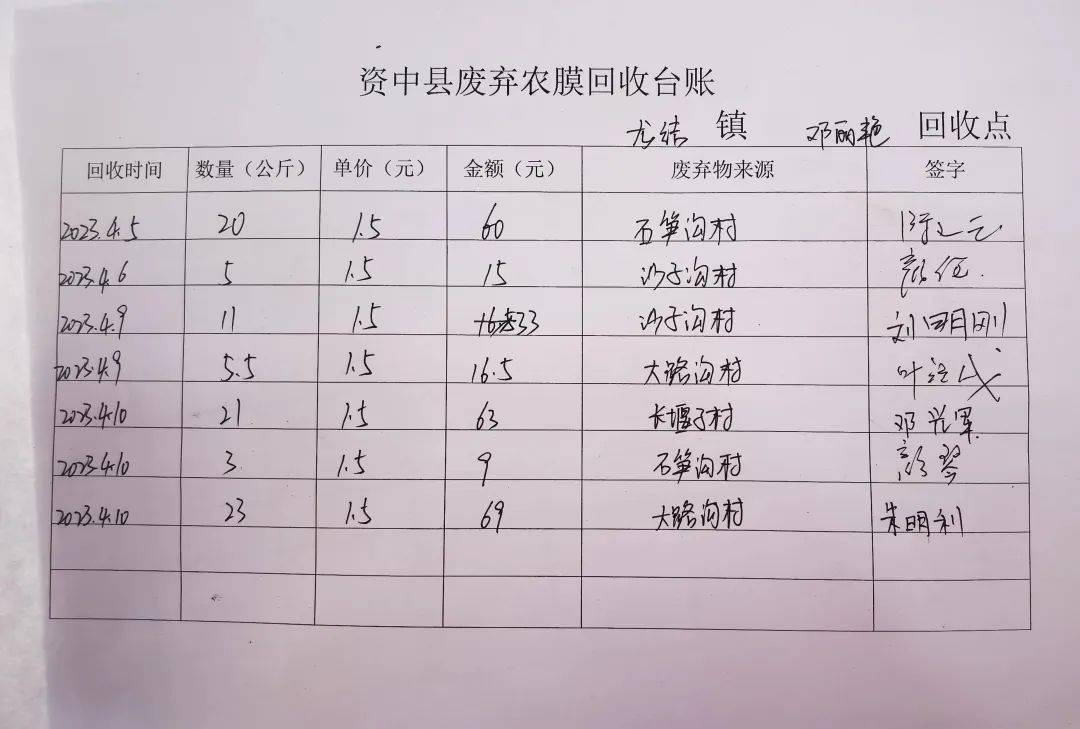 资中县废弃农膜回收台账
龙结 镇 邓丽艳 回收点
回收时间 数量（公斤） 单价（元） 金额（元） 废弃物来源 签字
2023.4.5 20 1.5 60 石笋沟村
2023.4.6 5 1.5 15 沙子沟村
2023.4.9 11 1.5 33 沙子沟村 刘明刚
2023.4.9 5.5 1.5 16.5 大路沟村
2023.4.10 21 1.5 63 长堰子村 邓兴军
2023.4.10 3 1.5 9 石笋沟村 颜琴
2023.4.10 23 1.5 69 大路沟村 朱明利